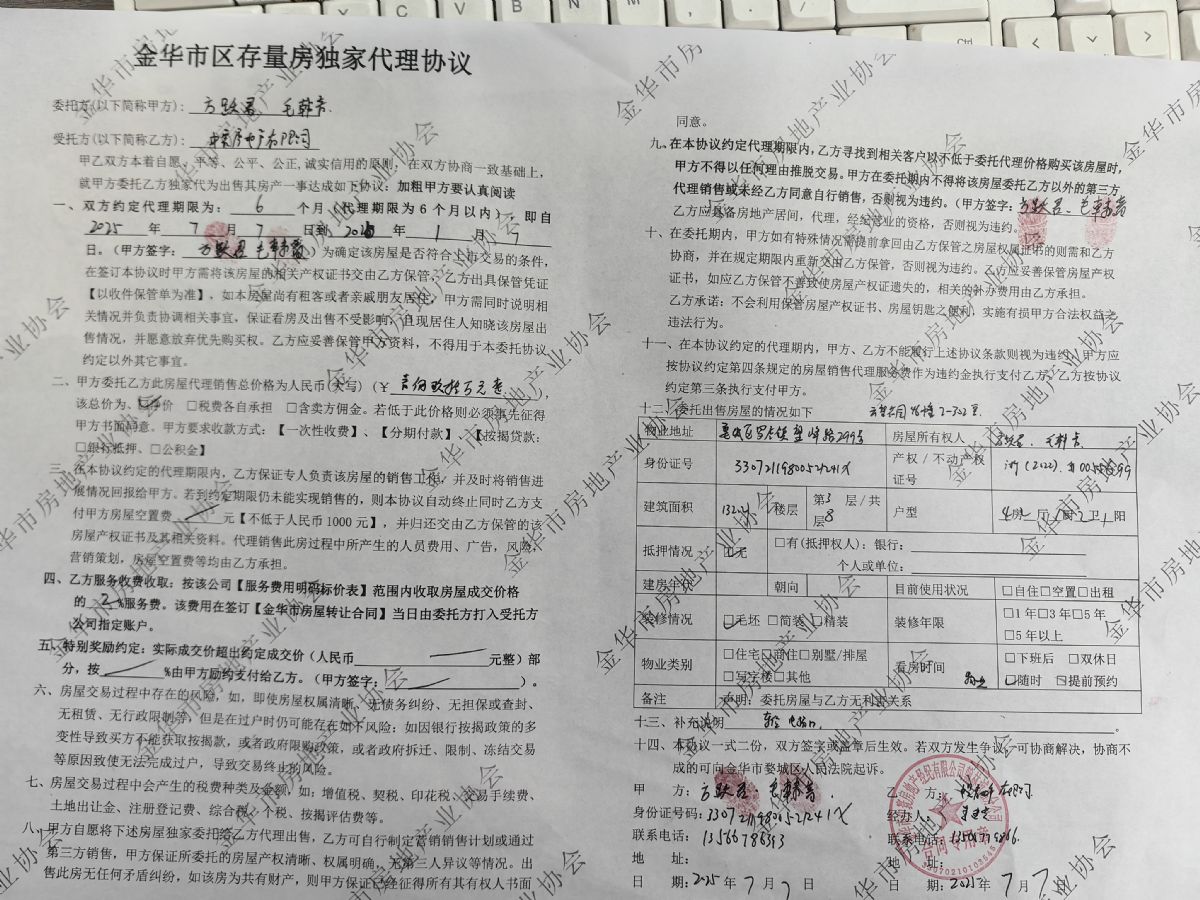 金华市区存量房独家代理协议
委托方(以下简称甲方):
受托方(以下简称乙方):
甲乙双方本着自愿、平等、公平、公正,诚实信用的原则,在双方协商一致基础上,
就甲方委托乙方独家代为出售其房产一事达成如下协议:加粗甲方要认真阅读
一、双方约定代理期限为: 6 个月(代理期限为6个月以内),即自
2025 年 7 月 7 日到 年 1 月 7
日。(甲方签字: )为确定该房屋是否符合上市交易的条件,
在签订本协议时甲方需将该房屋的相关产权证书交由乙方保管,乙方出具保管凭证
【以收件保管单为准】,如本房屋尚有租客或者亲戚朋友居住,甲方需同时说明相
关情况并负责协调相关事宜,保证看房及出售不受影响,且现居住人知晓该房屋出
售情况,并愿意放弃优先购买权。乙方应妥善保管甲方资料,不得用于本委托协议
约定以外其它事宜。
二、甲方委托乙方此房屋代理销售总价格为人民币(大写)(¥
该总价为、☑净价 □税费各自承担 □含卖方佣金。若低于此价格则必须事先征得
甲方书面同意。甲方要求收款方式:【一次性收费】、【分期付款】、【按揭贷款:
□银行抵押、□公积金】
三、在本协议约定的代理期限内,乙方保证专人负责该房屋的销售工作,并及时将销售进
展情况回报给甲方。若到约定期限仍未能实现销售的,则本协议自动终止同时乙方支
付甲方房屋空置费 元【不低于人民币1000元】,并归还交由乙方保管的该
房屋产权证书及其相关资料。代理销售此房过程中所产生的人员费用、广告,风险,
营销策划,房屋空置费等均由乙方承担。
四、乙方服务收费收取:按该公司【服务费用明码标价表】范围内收取房屋成交价格
的 2 %服务费。该费用在签订【金华市房屋转让合同】当日由委托方打入受托方
公司指定账户。
五、特别奖励约定:实际成交价超出约定成交价(人民币 元整)部
分,按 %由甲方励约支付给乙方。(甲方签字: )。
六、房屋交易过程中存在的风险,如,即使房屋权属清晰、无债务纠纷、无担保或查封、
无租赁、无行政限制等,但是在过户时仍可能存在如不风险:如因银行按揭政策的多
变性导致买方不能获取按揭款,或者政府限购政策,或者政府拆迁、限制、冻结交易
等原因致使无法完成过户,导致交易终止的风险。
七、房屋交易过程中会产生的税费种类及金额,如:增值税、契税、印花税、交易手续费、
土地出让金、注册登记费、综合税、个税、按揭评估费等。
八、甲方自愿将下述房屋独家委托给乙方代理出售,乙方可自行制定营销销售计划或通过
第三方销售,甲方保证所委托的房屋产权清晰、权属明确、无第三人异议等情况。出
售此房无任何矛盾纠纷,如该房为共有财产,则甲方保证已经征得所有其有权人书面
同意。
九、在本协议约定代理期限内,乙方寻找到相关客户以不低于委托代理价格购买该房屋时,
甲方不得以任何理由推脱交易。甲方在委托期内不得将该房屋委托乙方以外的第三方
代理销售或未经乙方同意自行销售,否则视为违约。(甲方签字:
乙方应具备房地产居间,代理,经纪执业的资格,否则视为违约。
十、在委托期内,甲方如有特殊情况需提前拿回由乙方保管之房屋权属证书的则需和乙方
协商,并在规定期限内重新交由乙方保管,否则视为违约。乙方应妥善保管房屋产权
证书,如应乙方保管不善致使房屋产权证遗失的,相关的补办费用由乙方承担。
乙方承诺:不会利用保管房屋产权证书、房屋钥匙之便利,实施有损甲方合法权益之
违法行为。
十一、在本协议约定的代理期内,甲方、乙方不能履行上述协议条款则视为违约,甲方应
按协议约定第四条规定的房屋销售代理服务费作为违约金执行支付乙方,乙方按协议
约定第三条执行支付甲方。
十二、委托出售房屋的情况如下
物业地址 房屋所有权人
身份证号 33072119800524241X 产权/不动产权
证号
建筑面积 楼层 第3 层/共
8层 户型 4房 厅 厨 2卫 1阳
抵押情况 ☑无 □有(抵押权人):银行:
个人或单位:
建房年份 朝向 目前使用状况 □自住□空置□出租
装修情况 ☑毛坯 □简装 □精装 装修年限 □1年□3年□5年
□5年以上
物业类别 □住宅□商住□别墅/排屋
□写字楼□其他 看房时间 □下班后 □双休日
☑随时 □提前预约
备注 声明:委托房屋与乙方无利害关系
十三、补充说明
十四、本协议一式二份,双方签字或盖章后生效。若双方发生争议,可协商解决,协商不
成的可向金华市婺城区人民法院起诉。
甲 方: 乙 方:
身份证号码:33072119800524241X 经办人:
联系电话:13566786343 联系电话:
地 址: 地 址:
日 期:2025年7月7日 日 期:2025年7月7日
合同专用章
金华市房地产业协会